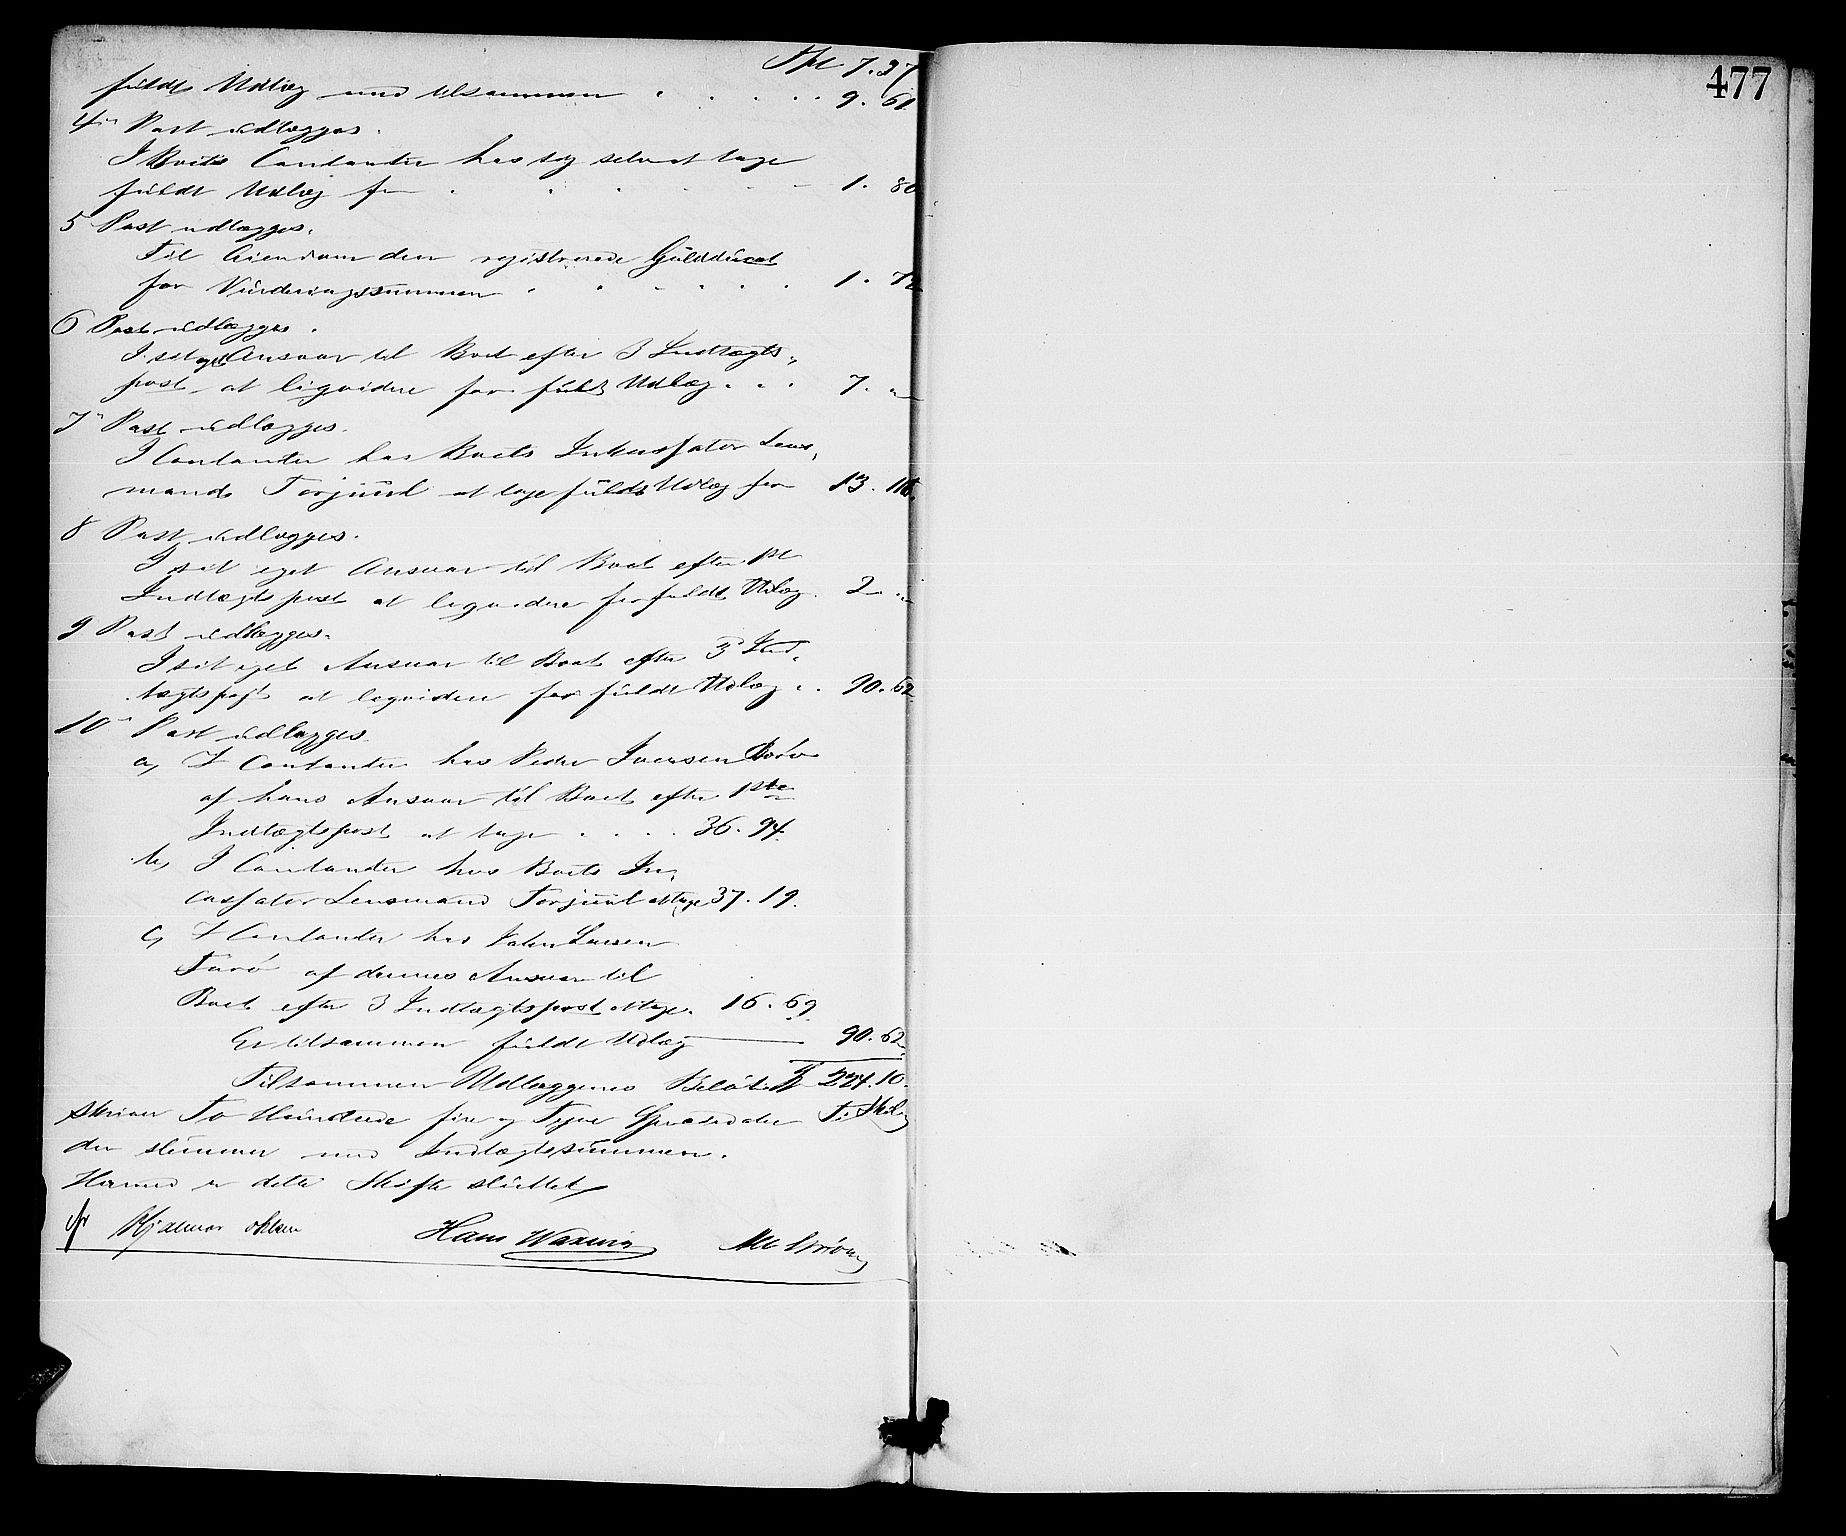 Spt 7. 37
fuldt Udlæg med tilsammen . . . . . 9. 61
4de Post udlægges.
I Boets Contanter hos sig selv at tage
fuldt Udlæg for . . . . . 1. 80
5 Post udlægges.
Til Eiendom den registrerede Guldducat
for Vurderingssummen . . . . . 1. 72
6 Post udlægges.
I sit eget Ansvar til Boet efter 3 Indtægts-
post at liqvidere for fuldt Udlæg . . . 7. "
7de Post udlægges.
I Contanter hos Boets Inkassator Lens-
mand Torjuul at tage fuldt Udlæg for 13.
8 Post udlægges.
I sit eget Ansvar til Boet efter 1ste
Indtægtspost at liqvidere for fuldt Udlæg. 2 "
9 Post udlægges.
I sit eget Ansvar til Boet efter 3die Ind-
tægtspost at liqvidere for fuldt Udlæg . . 90. 62
10de Post udlægges
a, I Contanter hos Peder Iversen
af hans Ansvar til Boet efter 1ste
Indtægtspost at tage . . . . 36. 94.
b, I Contanter hos Boets In-
cassator Lensmand Torjuul at tage 37. 19.
c, I Contanter hos Larsen
af dennes Ansvar til
Boet efter 3 Indtægtspost at tage. 16. 69.
Er tilsammen fuldt Udlæg 90. 62.
Tilsammen Udlæggenes Beløb 224. 10.
skriver To Hundrede fire og Tyve Speciedaler Ti Skil
der stemmer med Indtægtssummen.
Hermed er dette Skifte sluttet
Hjalmar Hans
477